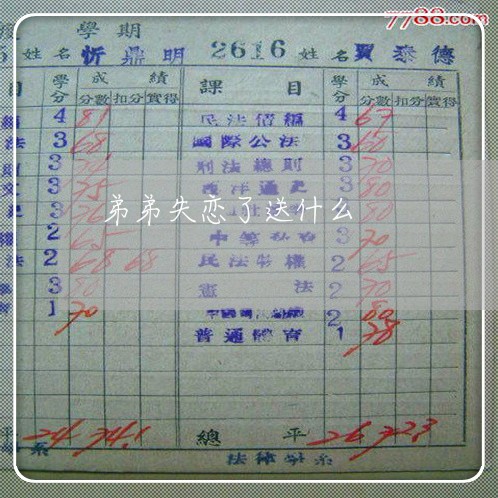 7788.com
學期
姓名 忻鼎明 2616 姓名 賈泰德
目 學分 成績 課目 學分 成績
分數 扣分 實得 分數 扣分 實得
4 81 民法債編 4 67
法 3 68 國際公法 3 60
3 刑法總則 3 70
3 75 西洋通史 3 80
3 80
弟弟失恋了送什么
2 65 3 70
法 2 68 68 民法物權 2 65
3 80 憲法 2 70
1 70 2 80
普通體育 1 78
平 24 74.1 總平 26 72.3
系 法律學系